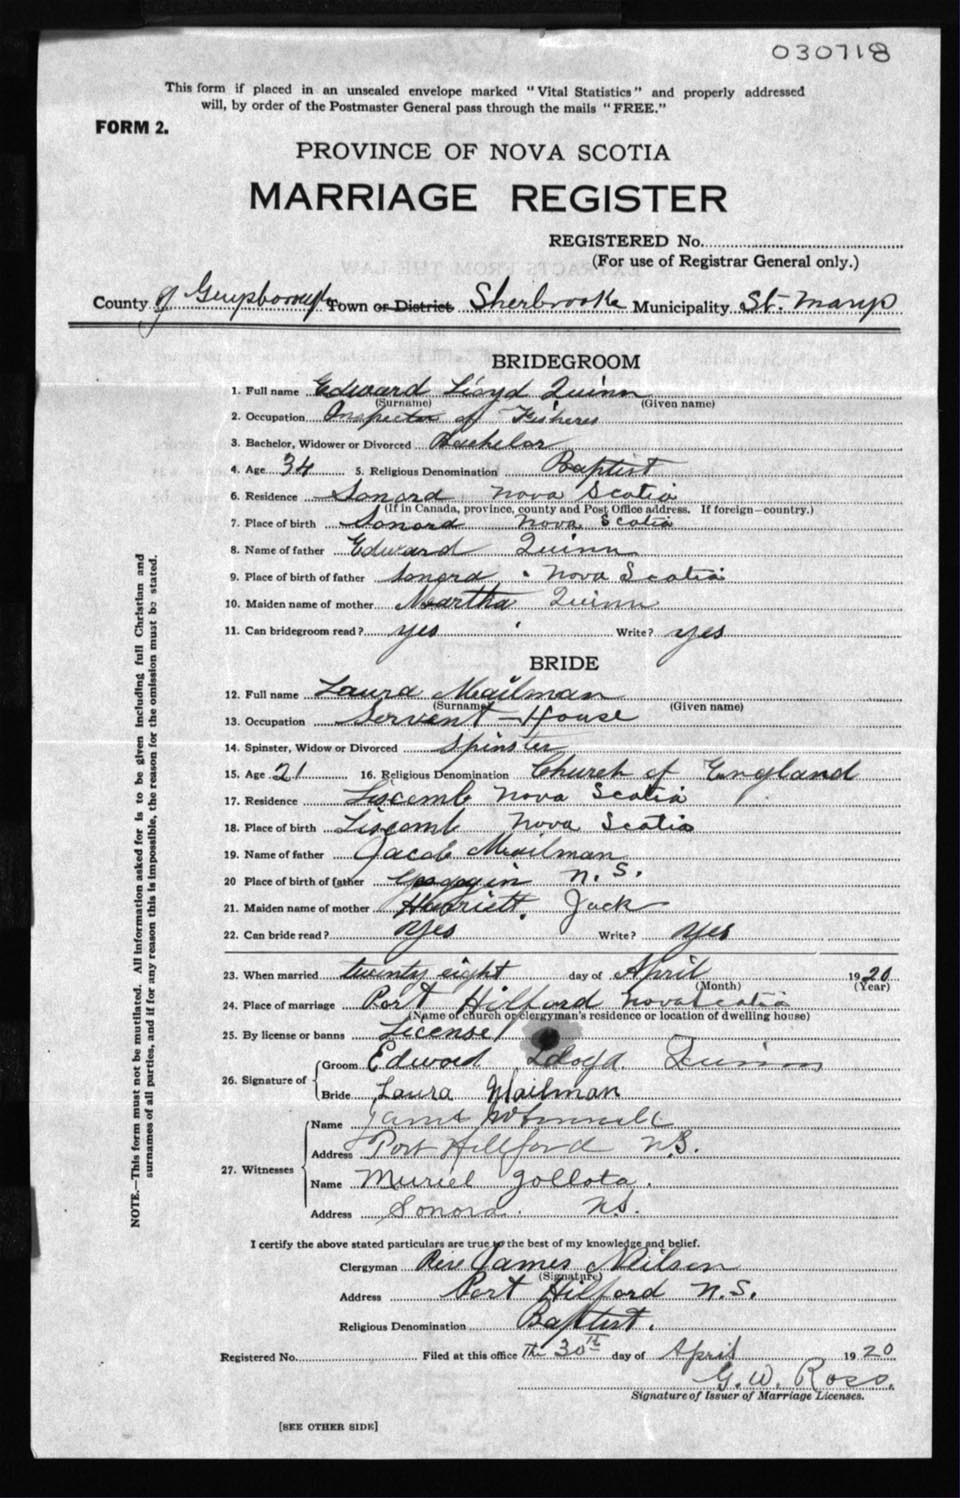 030718
This form if placed in an unsealed envelope marked "Vital Statistics" and properly addressed
will, by order of the Postmaster General pass through the mails "FREE."
FORM 2.
PROVINCE OF NOVA SCOTIA
MARRIAGE REGISTER
REGISTERED No.
(For use of Registrar General only.)
County of Guysborough Town or District Sherbrooke Municipality St. Marys
BRIDEGROOM
1. Full name Edward Lloyd Quinn
(Surname) (Given name)
2. Occupation Inspector of Fisheres
3. Bachelor, Widower or Divorced Bachelor
4. Age 34 5. Religious Denomination Baptist
6. Residence Sonord Nova Scotia
(If in Canada, province, county and Post Office address. If foreign—country.)
7. Place of birth Sonord Nova Scotia
8. Name of father Edward Quinn
9. Place of birth of father Sonord Nova Scotia
10. Maiden name of mother Martha Quinn
11. Can bridegroom read? yes Write? yes
BRIDE
12. Full name Laura Mailman
(Surname) (Given name)
13. Occupation Servent - House
14. Spinster, Widow or Divorced Spinster
15. Age 21 16. Religious Denomination Church of England
17. Residence Liscomb Nova Scotia
18. Place of birth Liscomb Nova Scotia
19. Name of father Jacob Mailman
20 Place of birth of father N.S.
21. Maiden name of mother Harriett Jack
22. Can bride read? Yes Write? Yes
23. When married twenty eight day of April 1920
(Month) (Year)
24. Place of marriage Port Hilford Nova Scotia
(Name of church or clergyman's residence or location of dwelling house)
25. By license or banns License
26. Signature of
Groom Edword Lloyd Quinn
Bride Laura Mailman
27. Witnesses
Name James
Address Port Hillford N.S.
Name Muriel Jollota.
Address Sonora. NS.
I certify the above stated particulars are true to the best of my knowledge and belief.
Clergyman Rev James Neilson
(Signature)
Address Port Hilford N.S.
Religious Denomination Baptist.
Registered No. Filed at this office The 30th day of April 1920
G. W. Ross.
Signature of Issuer of Marriage Licenses.
[SEE OTHER SIDE]
NOTE.—This form must not be mutilated. All information asked for is to be given including full Christian and
surnames of all parties, and if for any reason this is impossible, the reason for the omission must be stated.